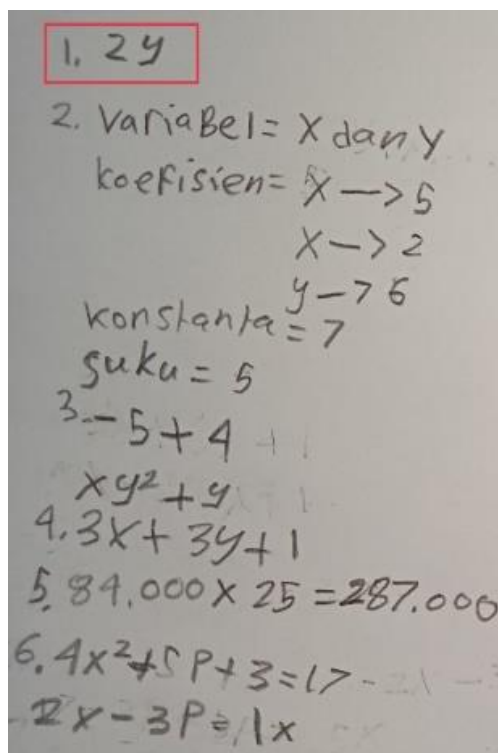 1. 2y
2. VariaBel = X dan Y
koefisien = X —> 5
X —> 2
y —> 6
konstanta = 7
suku = 5
3. - 5 + 4
xy² + y
4. 3x + 3y + 1
5. 84.000 x 25 = 287.000
6. 4x² + 5P + 3 = 17
2x - 3P = 1x